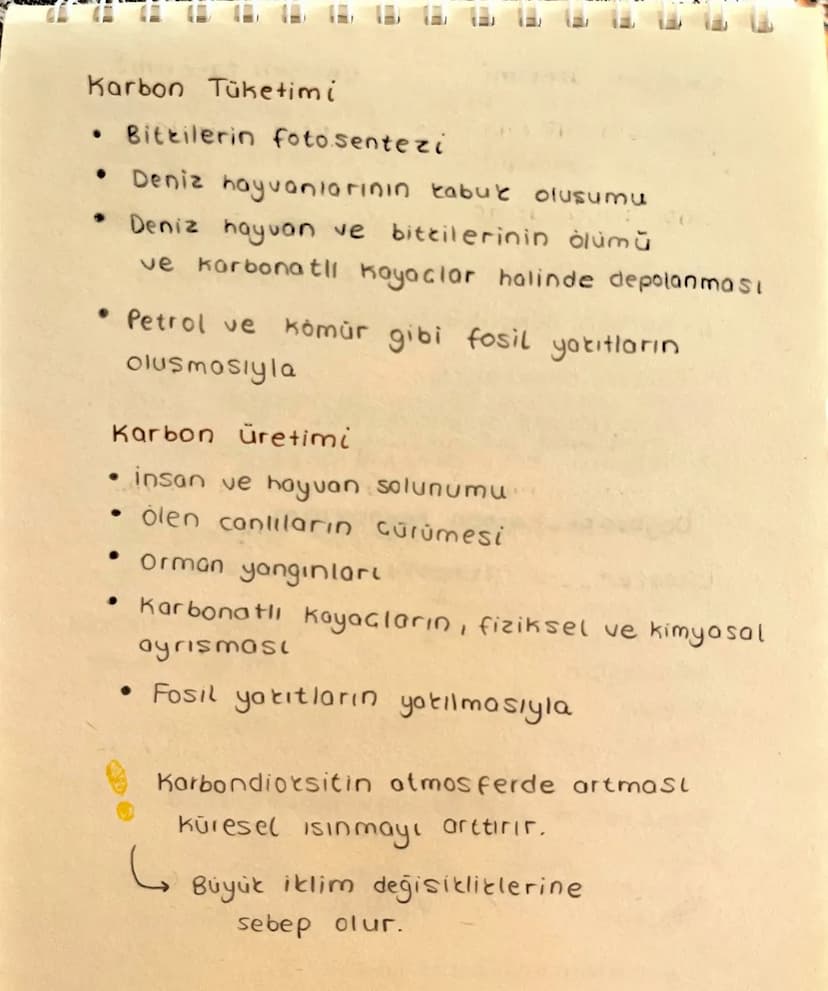 Karbon Tüketimi
• Bitkilerin fotosentezi
• Deniz hayvanlarının kabuk oluşumu
• Deniz hayvan ve bitkilerinin ölümü
ve karbonatlı kayaçlar halinde depolanması
• Petrol ve kömür gibi fosil yakıtların
oluşmasıyla
Karbon üretimi
• insan ve hayvan solunumu
• Ölen canlıların çürümesi
• Orman yangınları
• Karbonatlı kayaçların, fiziksel ve kimyasal
ayrışması
• Fosil yakıtların yakılmasıyla
! Karbondioksitin atmosferde artması
küresel ısınmayı arttırır.
↳ Büyük iklim değişikliklerine
sebep olur.